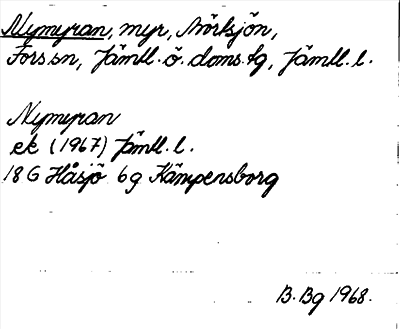 Nymyran, myr, Mörtsjön,
Fors sn, Jämtl. ö. doms.tg, Jämtl. l.
Nymyran
ek (1967) Jämtl. l.
18 G Håsjö 6g Kämpensborg
B. Bg 1968.